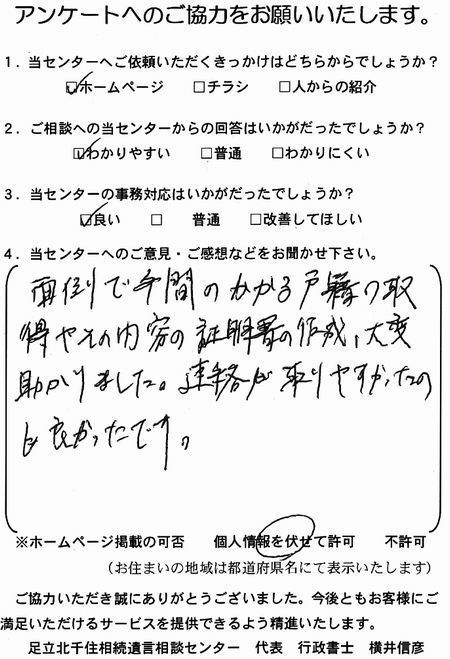 アンケートへのご協力をお願いいたします。
1．当センターへご依頼いただくきっかけはどちらからでしょうか？
☑ホームページ □チラシ □人からの紹介
2．ご相談への当センターからの回答はいかがだったでしょうか？
☑わかりやすい □普通 □わかりにくい
3．当センターの事務対応はいかがだったでしょうか？
☑良い □ 普通 □改善してほしい
4．当センターへのご意見・ご感想などをお聞かせ下さい。
面倒で手間のかかる戸籍の取
得やその内容の証明書の作成、大変
助かりました。連絡が取りやすかったの
も良かったです。
※ホームページ掲載の可否 個人情報を伏せて許可 不許可
（お住まいの地域は都道府県名にて表示いたします）
ご協力いただき誠にありがとうございました。今後ともお客様にご
満足いただけるサービスを提供できるよう精進いたします。
足立北千住相続遺言相談センター 代表 行政書士 横井信彦